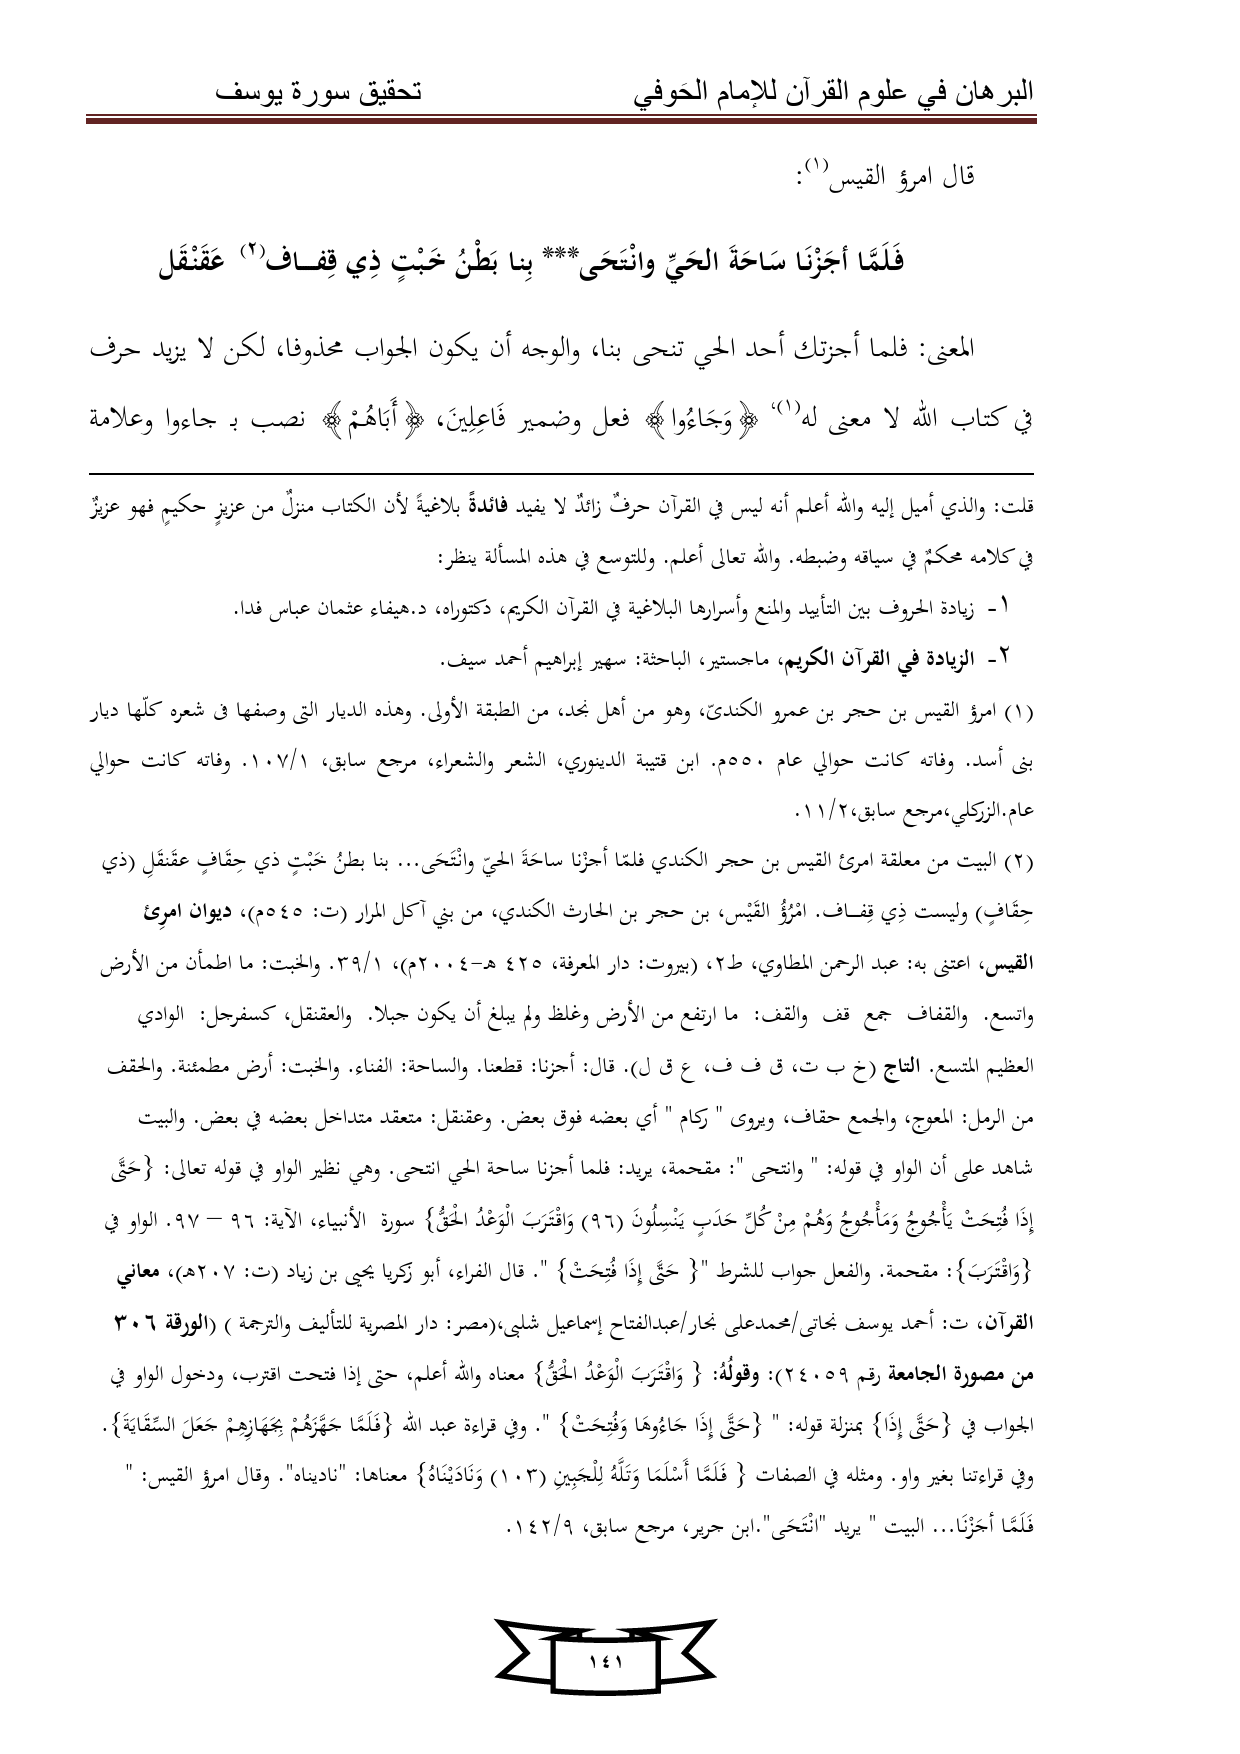 البرهان في علوم القرآن للإمام الحَوفي تحقيق سورة يوسف
قال امرؤ القيس(١):
فَلَمَّا أجَزْنَا سَاحَةَ الحَيِّ وانْتَحَى*** بِنا بَطْنُ خَبْتٍ ذِي قِفـــاف(٢) عَقَنْقَل
المعنى: فلما أجزتك أحد الحي تنحى بنا، والوجه أن يكون الجواب محذوفا، لكن لا يزيد حرف
في كتاب الله لا معنى له(١)، ﴿وَجَاءُوا﴾ فعل وضمير فَاعِلِينَ، ﴿أَبَاهُمْ﴾ نصب بـ جاءوا وعلامة
قلت: والذي أميل إليه والله أعلم أنه ليس في القرآن حرفٌ زائدٌ لا يفيد فائدةً بلاغيةً لأن الكتاب منزلٌ من عزيزٍ حكيمٍ فهو عزيزٌ
في كلامه محكمٌ في سياقه وضبطه. والله تعالى أعلم. وللتوسع في هذه المسألة ينظر:
١- زيادة الحروف بين التأييد والمنع وأسرارها البلاغية في القرآن الكريم، دكتوراه، د.هيفاء عثمان عباس فدا.
٢- الزيادة في القرآن الكريم، ماجستير، الباحثة: سهير إبراهيم أحمد سيف.
(١) امرؤ القيس بن حجر بن عمرو الكندىّ، وهو من أهل نجد، من الطبقة الأولى. وهذه الديار التى وصفها فى شعره كلّها ديار
بنى أسد. وفاته كانت حوالي عام ٥٥٠م. ابن قتيبة الدينوري، الشعر والشعراء، مرجع سابق، ١٠٧/١. وفاته كانت حوالي
عام.الزركلي،مرجع سابق،١١/٢.
(٢) البيت من معلقة امرئ القيس بن حجر الكندي فلمّا أجزْنا ساحَةَ الحيّ وانْتَحَى... بنا بطنُ خَبْتٍ ذي حِقَافٍ عقَنقَلِ (ذي
حِقَافٍ) وليست ذِي قِفـــاف. امْرُؤُ القَيْس، بن حجر بن الحارث الكندي، من بني آكل المرار (ت: ٥٤٥م)، ديوان امرِئ
القيس، اعتنى به: عبد الرحمن المطاوي، ط٢، (بيروت: دار المعرفة، ٤٢٥ هـ-٢٠٠٤م)، ٣٩/١. والخبت: ما اطمأن من الأرض
واتسع. والقفاف جمع قف والقف: ما ارتفع من الأرض وغلظ ولم يبلغ أن يكون جبلا. والعقنقل، كسفرجل: الوادي
العظيم المتسع. التاج (خ ب ت، ق ف ف، ع ق ل). قال: أجزنا: قطعنا. والساحة: الفناء. والخبت: أرض مطمئنة. والحقف
من الرمل: المعوج، والجمع حقاف، ويروى " ركام " أي بعضه فوق بعض. وعقنقل: متعقد متداخل بعضه في بعض. والبيت
شاهد على أن الواو في قوله: " وانتحى ": مقحمة، يريد: فلما أجزنا ساحة الحي انتحى. وهي نظير الواو في قوله تعالى: {حَتَّى
إِذَا فُتِحَتْ يَأْجُوجُ وَمَأْجُوجُ وَهُمْ مِنْ كُلِّ حَدَبٍ يَنْسِلُونَ (٩٦) وَاقْتَرَبَ الْوَعْدُ الْحَقُّ} سورة الأنبياء، الآية: ٩٦ – ٩٧. الواو في
{وَاقْتَرَبَ}: مقحمة. والفعل جواب للشرط "{ حَتَّى إِذَا فُتِحَتْ} ". قال الفراء، أبو زكريا يحيى بن زياد (ت: ٢٠٧هـ)، معاني
القرآن، ت: أحمد يوسف نجاتى/محمدعلى نجار/عبدالفتاح إسماعيل شلبى،(مصر: دار المصرية للتأليف والترجمة ) (الورقة ٣٠٦
من مصورة الجامعة رقم ٢٤٠٥٩): وقولُهُ: { وَاقْتَرَبَ الْوَعْدُ الْحَقُّ} معناه والله أعلم، حتى إذا فتحت اقترب، ودخول الواو في
الجواب في {حَتَّى إِذَا} بمنزلة قوله: " {حَتَّى إِذَا جَاءُوهَا وَفُتِحَتْ} ". وفي قراءة عبد الله {فَلَمَّا جَهَّزَهُمْ بِجَهَازِهِمْ جَعَلَ السِّقَايَةَ}.
وفي قراءتنا بغير واو. ومثله في الصفات { فَلَمَّا أَسْلَمَا وَتَلَّهُ لِلْجَبِينِ (١٠٣) وَنَادَيْنَاهُ} معناها: "ناديناه". وقال امرؤ القيس: "
فَلَمَّا أجَزْنَا... البيت " يريد "انْتَحَى".ابن جرير، مرجع سابق، ١٤٢/٩.
١٤١